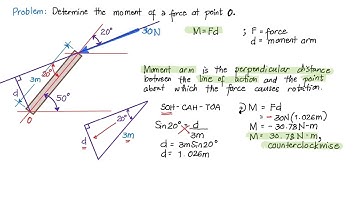 Problem: Determine the moment of a force at point O.
20°
30N
M=Fd
; F = force
d = moment arm
3m
20°
d
50°
O
Moment arm is the perpendicular distance
between the line of action and the point
about which the force causes rotation.
20°
d
3m
SOH - CAH - TOA
Sin20° = d
3m
d = 3mSin20°
d = 1.026m
M = Fd
= -30N(1.026m)
M = -30.78N-m
M = 30.78N-m,
counterclockwise